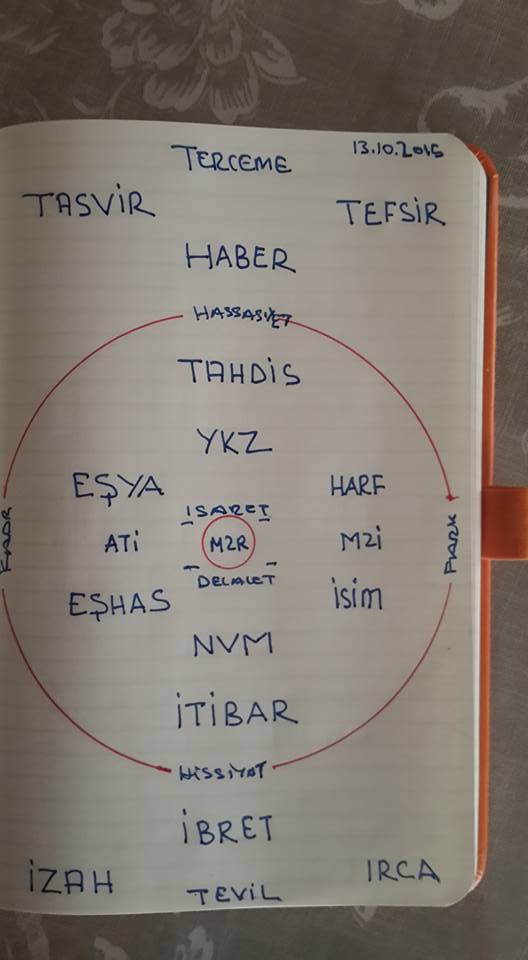 TERCEME 13.10.2015
TASVİR TEFSİR
HABER
HASSASİYET
TAHDİS
YKZ
EŞYA HARF
İŞARET
ATİ MZR MZİ
DELALET
EŞHAS İSİM
NVM
İTİBAR
HİSSİYAT
İBRET
İZAH IRCA
TEVİL